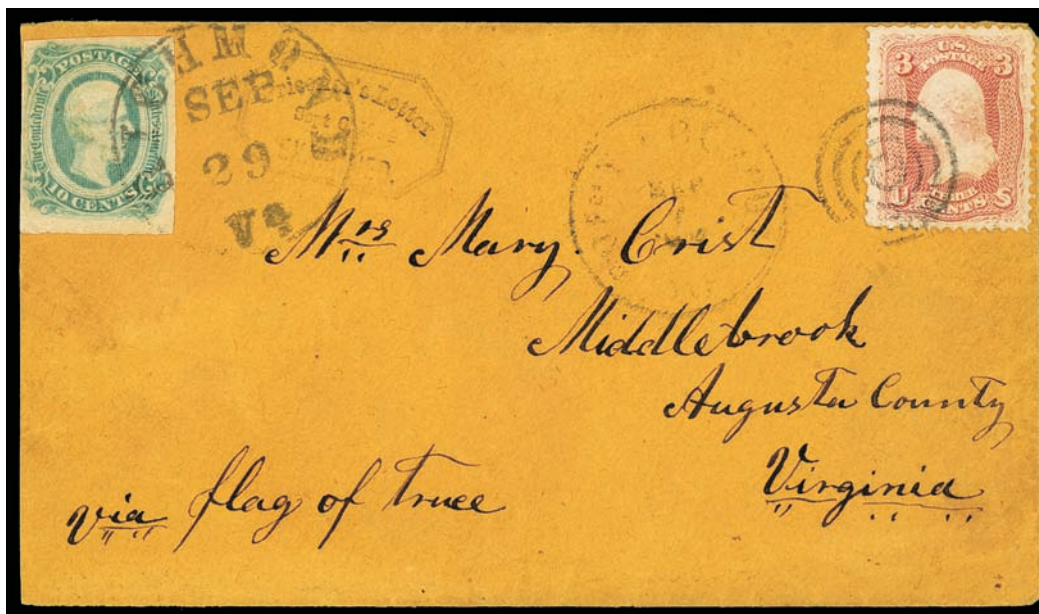 POSTAGE
The Confederate
10 CENTS
SEP
29
Va
Prisoner's Letter
3 U.S. POSTAGE 3
U CENTS S
Mrs Mary Crist
Middlebrook
Augusta County
Virginia
via flag of truce